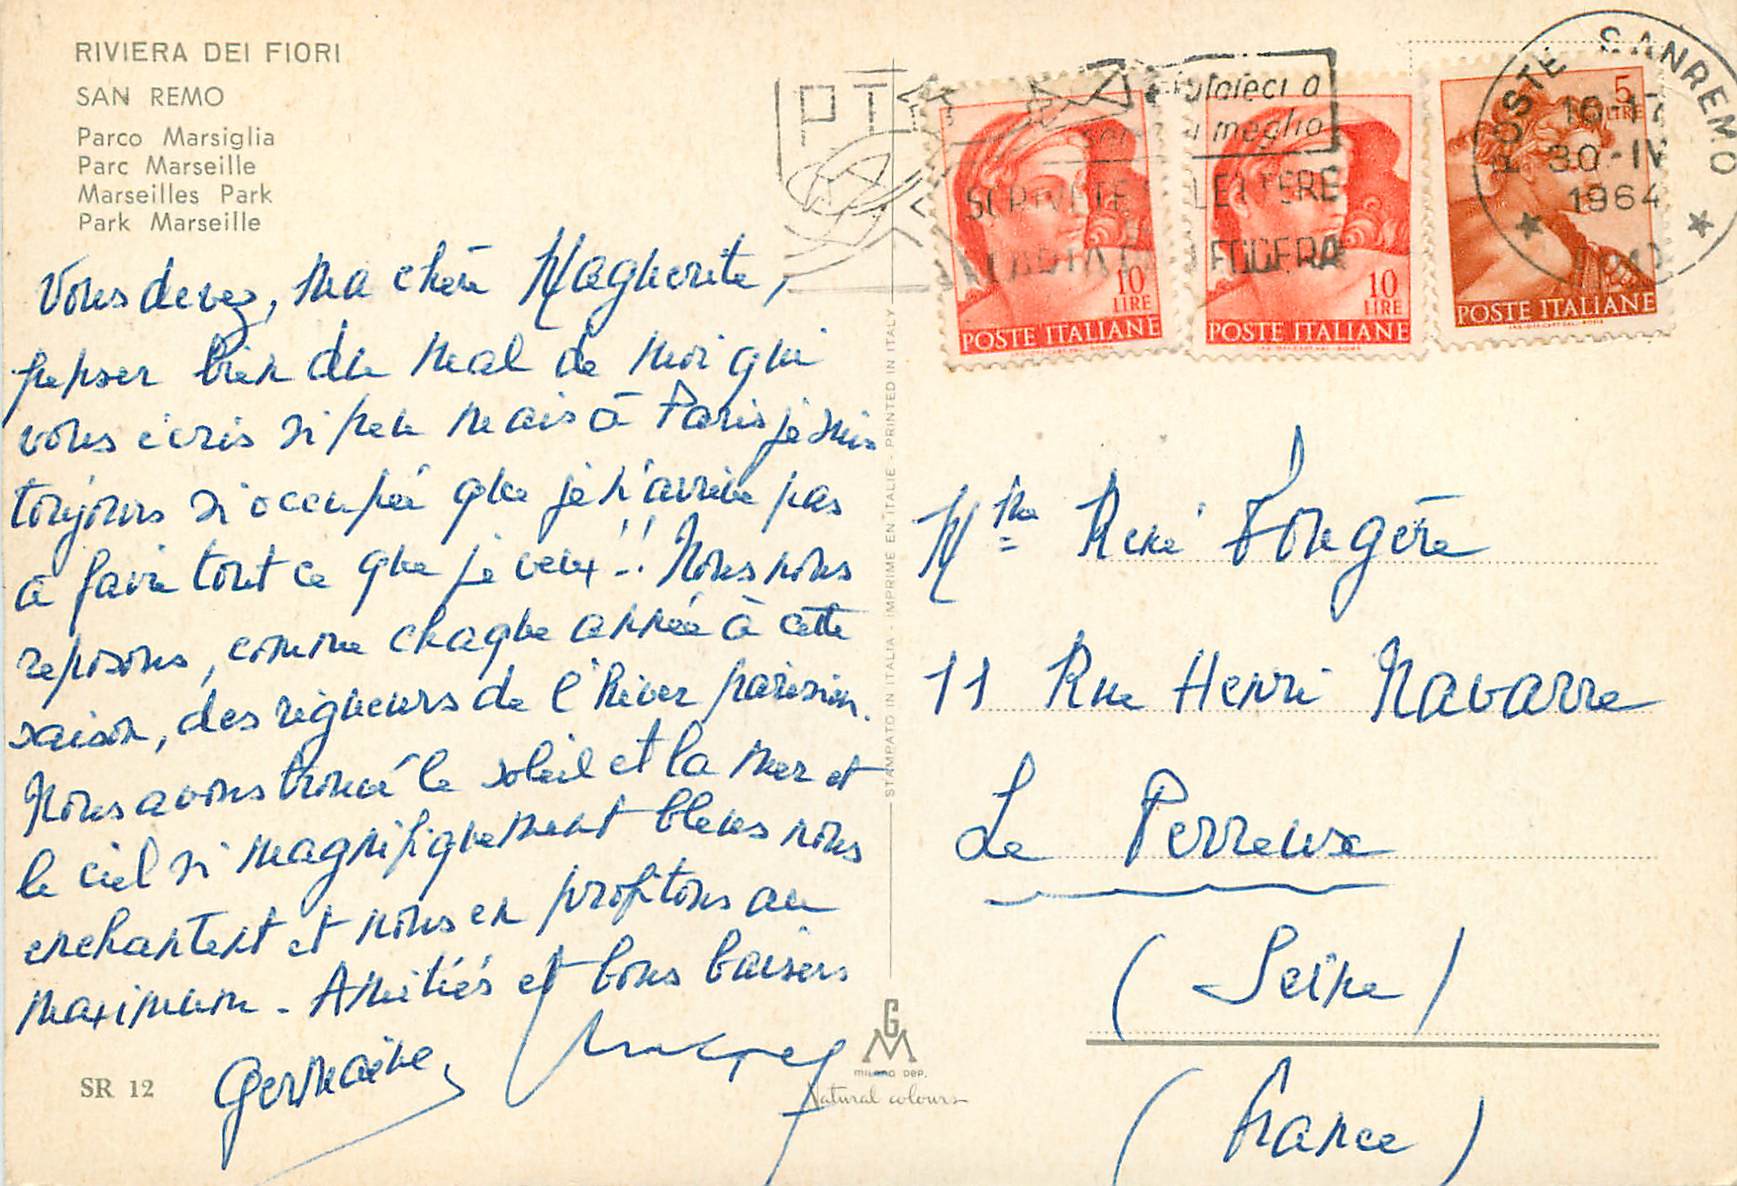 RIVIERA DEI FIORI
SAN REMO
Parco Marsiglia
Parc Marseille
Marseilles Park
Park Marseille
Vous devez, ma chère Magherite,
penser bien du mal de moi qui
vous écris si peu mais à Paris je suis
toujours si occupée que je n'arrive pas
à faire tout ce que je veux!! Nous nous
reposons, comme chaque année à cette
saison, des rigueurs de l'hiver parisien.
Nous avons trouvé le soleil et la mer et
le ciel si magnifiquement bleus nous
enchantent et nous en profitons au
maximum - Amitiés et bons baisers
Germaine
SR 12
STAMPATO IN ITALIA - IMPRIME EN ITALIE - PRINTED IN ITALY
GM
MILANO DEP.
Natural colours
PT
aiutateci a
servirvi meglio
SCRIVETE LETTERE
CARTA LEGGERA
10
LIRE
POSTE ITALIANE
10
LIRE
POSTE ITALIANE
5
LIRE
POSTE ITALIANE
POSTE SANREMO
16-17
30-IV
1964
Mme René Fougère
11 Rue Henri Navarre
Le Perreux
(Seine)
(France)